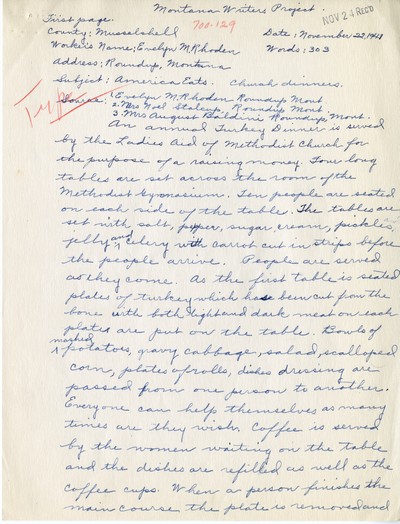 Montana Writers Project.
First page. no. 129 NOV 24 REC'D
County; Musselshell Date; November 22, 1941
Worker's Name; Evelyn M Rhoden Words: 303
Address; Roundup, Montana
Subject; America Eats. Church dinners.
Type
Source; 1. Evelyn M. Rhoden Roundup Mont.
2. Mrs Noel Roundup Mont.
3. Mrs August Baldini Roundup, Mont.
An annual Turkey Dinner is served
by the Ladies Aid of Methodist Church for
the purpose of a raising money. Four long
tables are set across the room of the
Methodist Gymnasium. Ten people are seated
on each side of the table. The tables are
set with salt, pepper, sugar, cream, pickles,
jelly and celery with carrot cut in strips before
the people arrive. People are served
as they come. As the first table is seated
plates of turkey which have been cut from the
bone with both light and dark meat on each
plate are put on the table. Bowls of
mashed potatoes, gravy cabbage, salad, scalloped
corn, plates of rolls, dishes dressing are
passed from one person to another.
Everyone can help themselves as many
times are they wish. Coffee is served
by the women waiting on the table
and the dishes are refilled as well as the
coffee cups. When a person finishes the
main course the plate is removed and